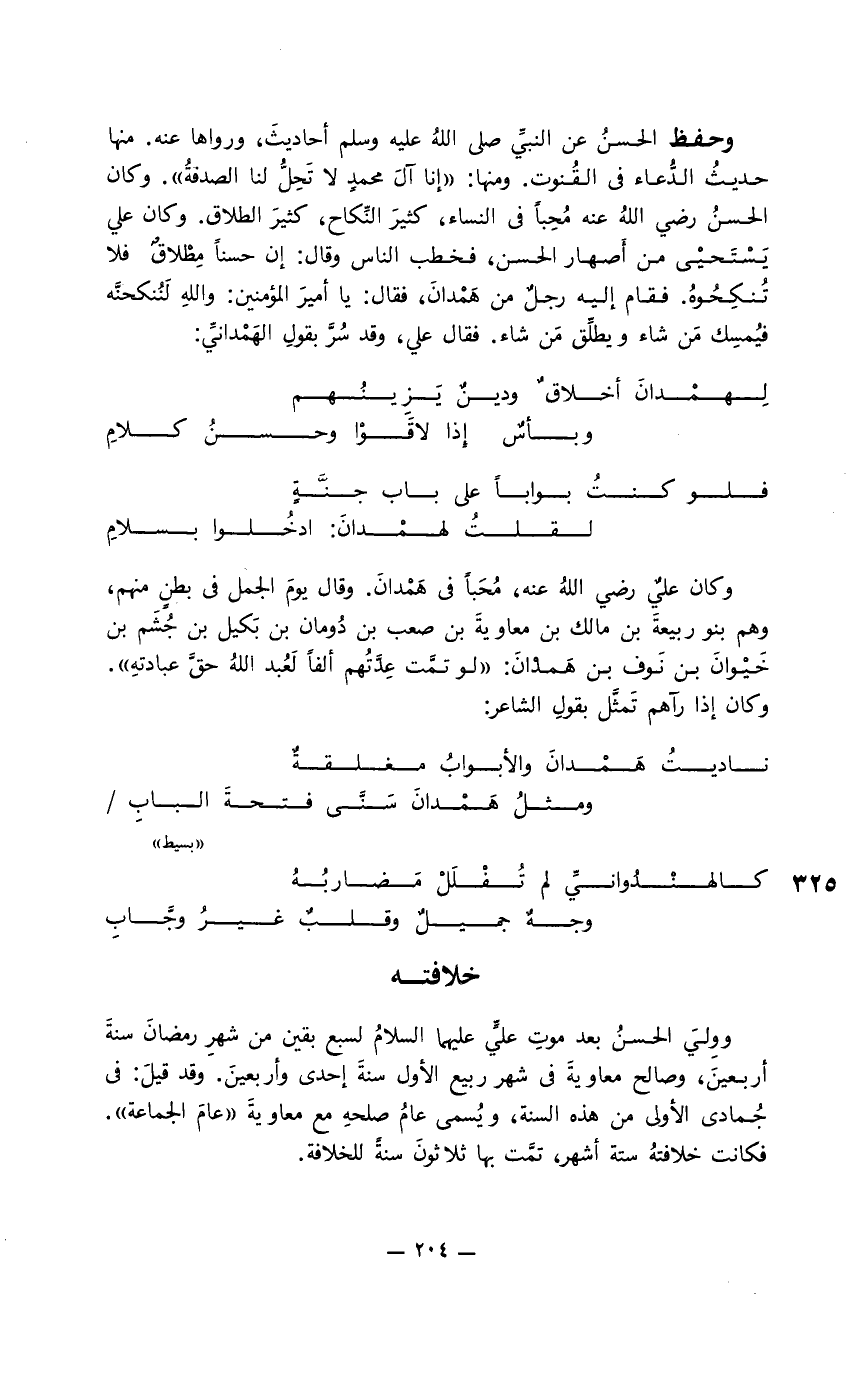 وحفظ الحسنُ عن النبيِّ صلى اللهُ عليه وسلم أحاديثَ، ورواها عنه. منها
حديثُ الدُّعاء فى القُنوت. ومنها: «إنا آلَ محمدٍ لا تَحِلُّ لنا الصدقةُ». وكان
الحسنُ رضي اللهُ عنه مُحِباً فى النساء، كثيرَ النِّكاح، كثيرَ الطلاق. وكان علي
يَسْتَحيْى من أَصهار الحسن، فخطب الناس وقال: إن حسناً مِطْلاقٌ فلا
تُنكِحُوهُ. فقام إليه رجلٌ من هَمْدانَ، فقال: يا أميرَ المؤمنين: واللهِ لَنُنكحنَّه
فيُمسِك مَن شاء ويطلِّق مَن شاء. فقال علي، وقد سُرَّ بقولِ الهَمْدانيِّ:
لِهمْدانَ أخلاقٌ ودينٌ يَزِينُهم
وبأسٌ إذا لاقَوْا وحسنُ كلامِ
فلو كنتُ بواباً على باب جنَّةٍ
لقلتُ لهمْدانَ: ادخُلوا بسلامِ
وكان عليٌ رضي اللهُ عنه، مُحَباً فى هَمْدانَ. وقال يومَ الجمل فى بطنٍ منهم،
وهم بنو ربيعةَ بن مالك بن معاويةَ بن صعب بن دُومان بن بَكيل بن جُشَم بن
خَيْوانَ بن نَوف بن همدْانَ: «لو تمَّت عِدَّتُهم ألفاً لَعُبد اللهُ حقَّ عبادتهِ».
وكان إذا رآهم تَمثَّل بقولِ الشاعر:
ناديتُ هَمْدانَ والأبوابُ مغلقةٌ
ومثلُ هَمْدانَ سَنَّى فتحةَ البابِ /
«بسيط»
٣٢٥ كالهنْدُوانيِّ لم تُفْلَلْ مَضاربُهُ
وجهٌ جميلٌ وقلبٌ غيرُ وجَّابِ
خلافته
ووليَ الحسنُ بعد موتِ عليٍّ عليها السلامُ لسبع بقين من شهرِ رمضانَ سنةَ
أربعينَ، وصالح معاويةَ فى شهر ربيع الأول سنةَ إحدى وأربعينَ. وقد قيلَ: فى
جُمادى الأولى من هذه السنة، ويُسمى عامُ صلحهِ مع معاويةَ «عامَ الجماعة».
فكانت خلافتهُ ستة أشهر، تمَّت بها ثلاثونَ سنةً للخلافة.
— ٢٠٤ —